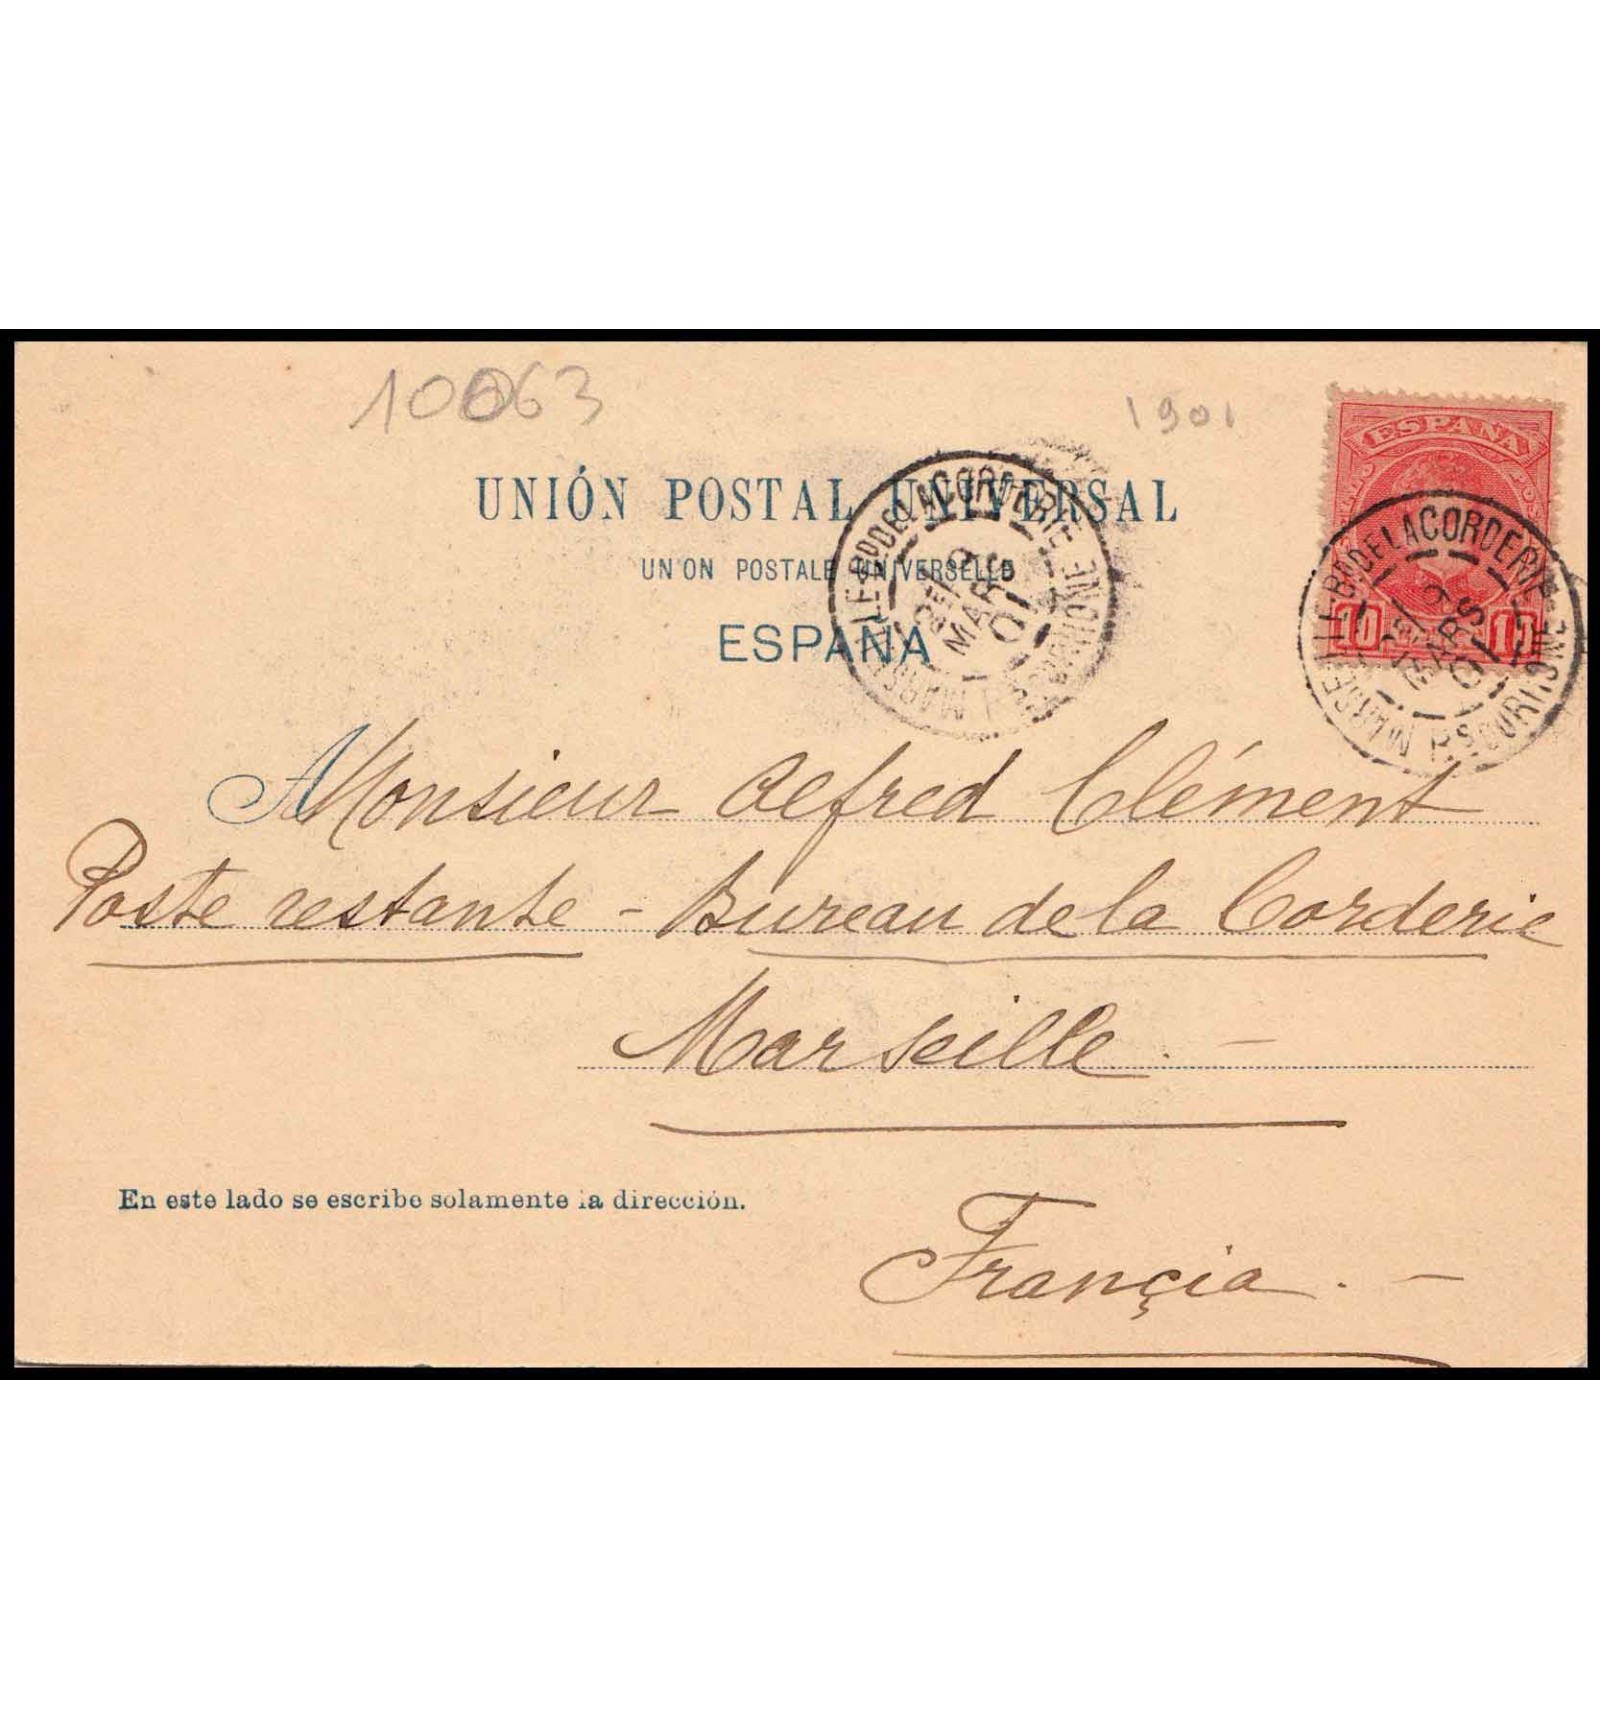 10063
1901
ESPAÑA
10 10
UNIÓN POSTAL UNIVERSAL
UNION POSTALE UNIVERSELLE
ESPAÑA
MARSEILLE-BD DE LA CORDERIE
BCH DU RHONE
9 MARS 01
MARSEILLE-BD DE LA CORDERIE
BCH DU RHONE
9 MARS 01
A Monsieur Alfred Clément
Poste restante - Bureau de la Corderie
Marseille. -
En este lado se escribe solamente la dirección.
Françia. -